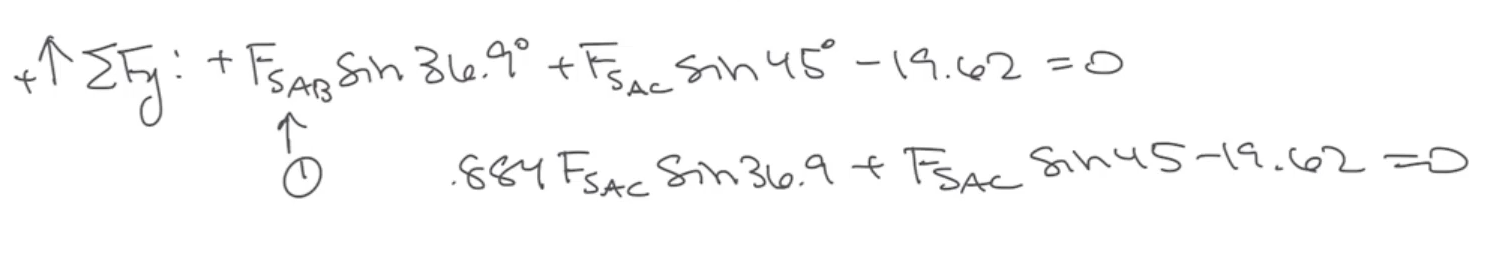 +↑ΣFy: +F_SAB sin 36.9° + F_SAC sin 45° - 19.62 = 0
↑
① .884 F_SAC sin 36.9 + F_SAC sin 45 - 19.62 = 0